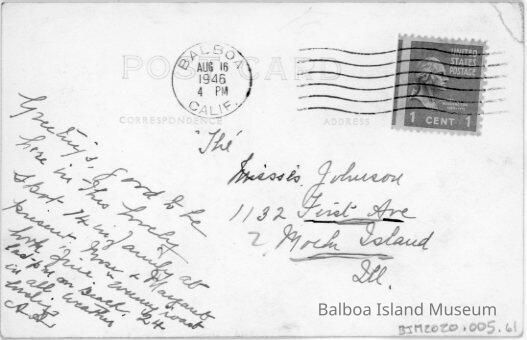 BALBOA
AUG 16
1946
4 PM
CALIF.
POST CARD
UNITED
STATES
POSTAGE
1 CENT 1
CORRESPONDENCE
ADDRESS
Greetings, good to be
here in this lovely
spot. 14 in family at
present, &
both fine
last on beach. 24
in all weather
"The
Misses Johnson
1132 First Ave
Island
Ill.
Balboa Island Museum
BIM2020.005.61